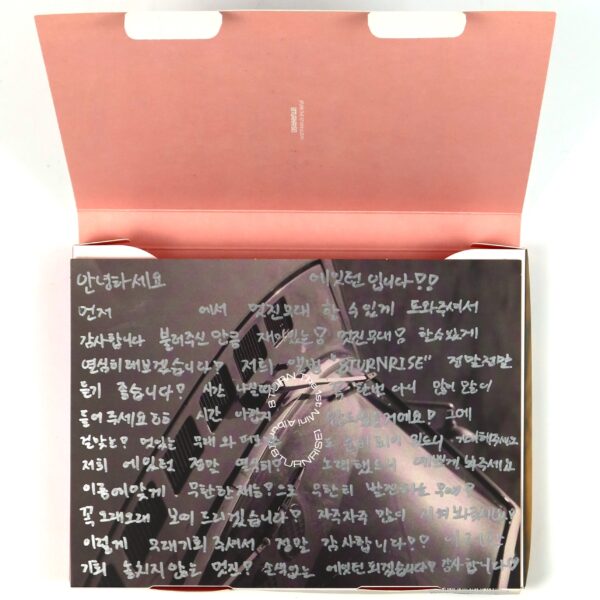 안녕하세요 에잇턴입니다!!
먼저 에서 멋진무대 할 수 있게 도와주셔서
감사합니다 불러주신 만큼 재미있는! 멋진무대! 할수있게
열심히 해보겠습니다! 저희 앨범 "8TURNRISE" 정말정말
듣기 좋습니다! 시간 한번 아니 많이 많이
들어주세요 시간
걸맞는! 멋있는 무대와 기대해주세요
저희 에잇턴 정말 열심히! 노력했으니 예쁘게 봐주세요
이름에맞게 무한한재능!으로 무한히 발전하는 무대!
꼭 오래오래 보여 드리겠습니다! 자주자주 많이 지켜봐주세요!
이렇게 무대기회 주셔서 정말 감사합니다!!
기회 놓치지 않는 멋진! 손색없는 에잇턴 되겠습니다! 감사합니다
8TURN The 1st Mini Album [8TURNRISE]